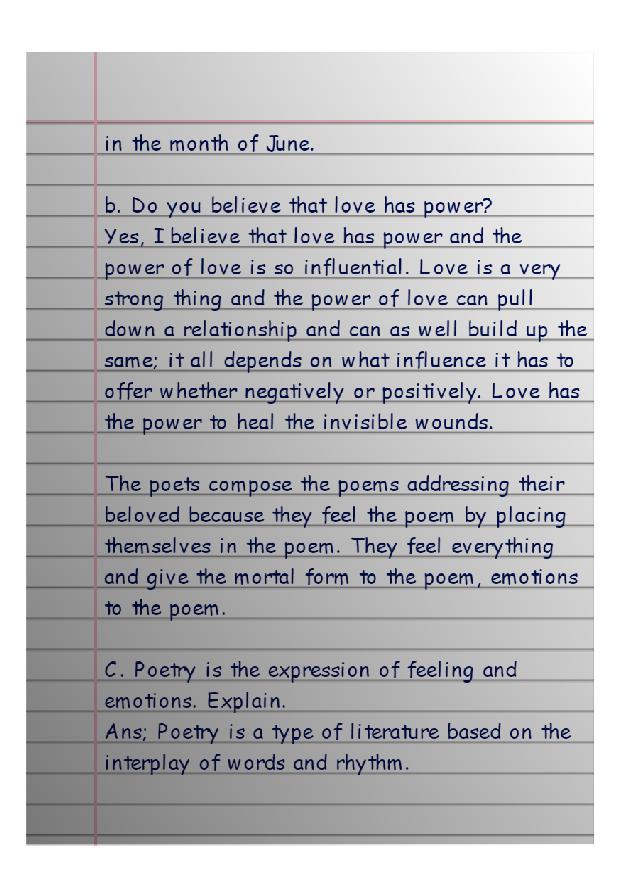 in the month of June.
b. Do you believe that love has power?
Yes, I believe that love has power and the
power of love is so influential. Love is a very
strong thing and the power of love can pull
down a relationship and can as well build up the
same; it all depends on what influence it has to
offer whether negatively or positively. Love has
the power to heal the invisible wounds.
The poets compose the poems addressing their
beloved because they feel the poem by placing
themselves in the poem. They feel everything
and give the mortal form to the poem, emotions
to the poem.
C. Poetry is the expression of feeling and
emotions. Explain.
Ans; Poetry is a type of literature based on the
interplay of words and rhythm.